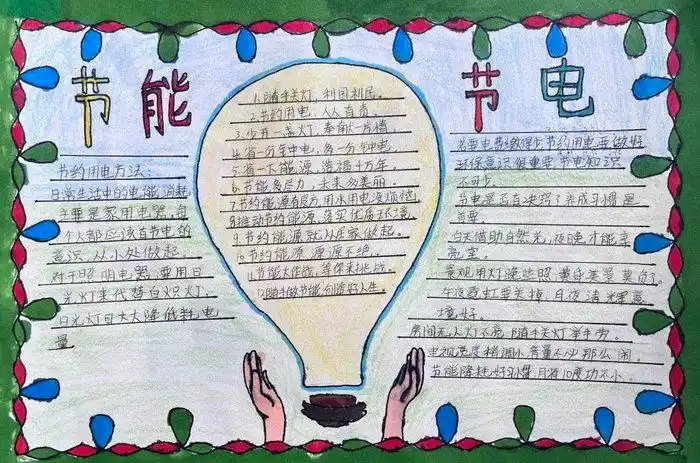 节能
节电
节约用电方法:
日常生活中的电能消耗
主要是家用电器,每
个人都应该有节电的
意识,从小处做起。
对于照明电器,要用日
光灯来代替白炽灯,
日光灯可大大降低耗电
量
1.随手关灯,利国利民。
2.节约用电,人人有责。
3.少开一盏灯,奉献一片情。
4.省一分钟电,多一分钟电。
5.省一天能源,造福4万年。
6.节能多尽力,未来多美丽。
7.节约能源有良方,用水用电没烦恼。
8.推动节约能源,落实优质环境。
9.节约能源就从居家做起。
10.节约能源,源源不绝。
11.节能大作战,等你来挑战。
12.随手做节能,创造好人生。
若要电费缴得少,节约用电要做好,
环保意识很重要,节电知识
不可少。
节电是否百决窍了,养成习惯是
首要
白天借助自然光,夜晚才能亮
亮堂。
景观用灯晚些照,黄昏美景莫负了。
午夜霓虹要关掉,月夜清辉意
境好。
房间无人灯不亮,随手关灯举手劳。
电视亮度稍调小,音量不必那么闹。
节能降耗好习惯,月省10度功不小。